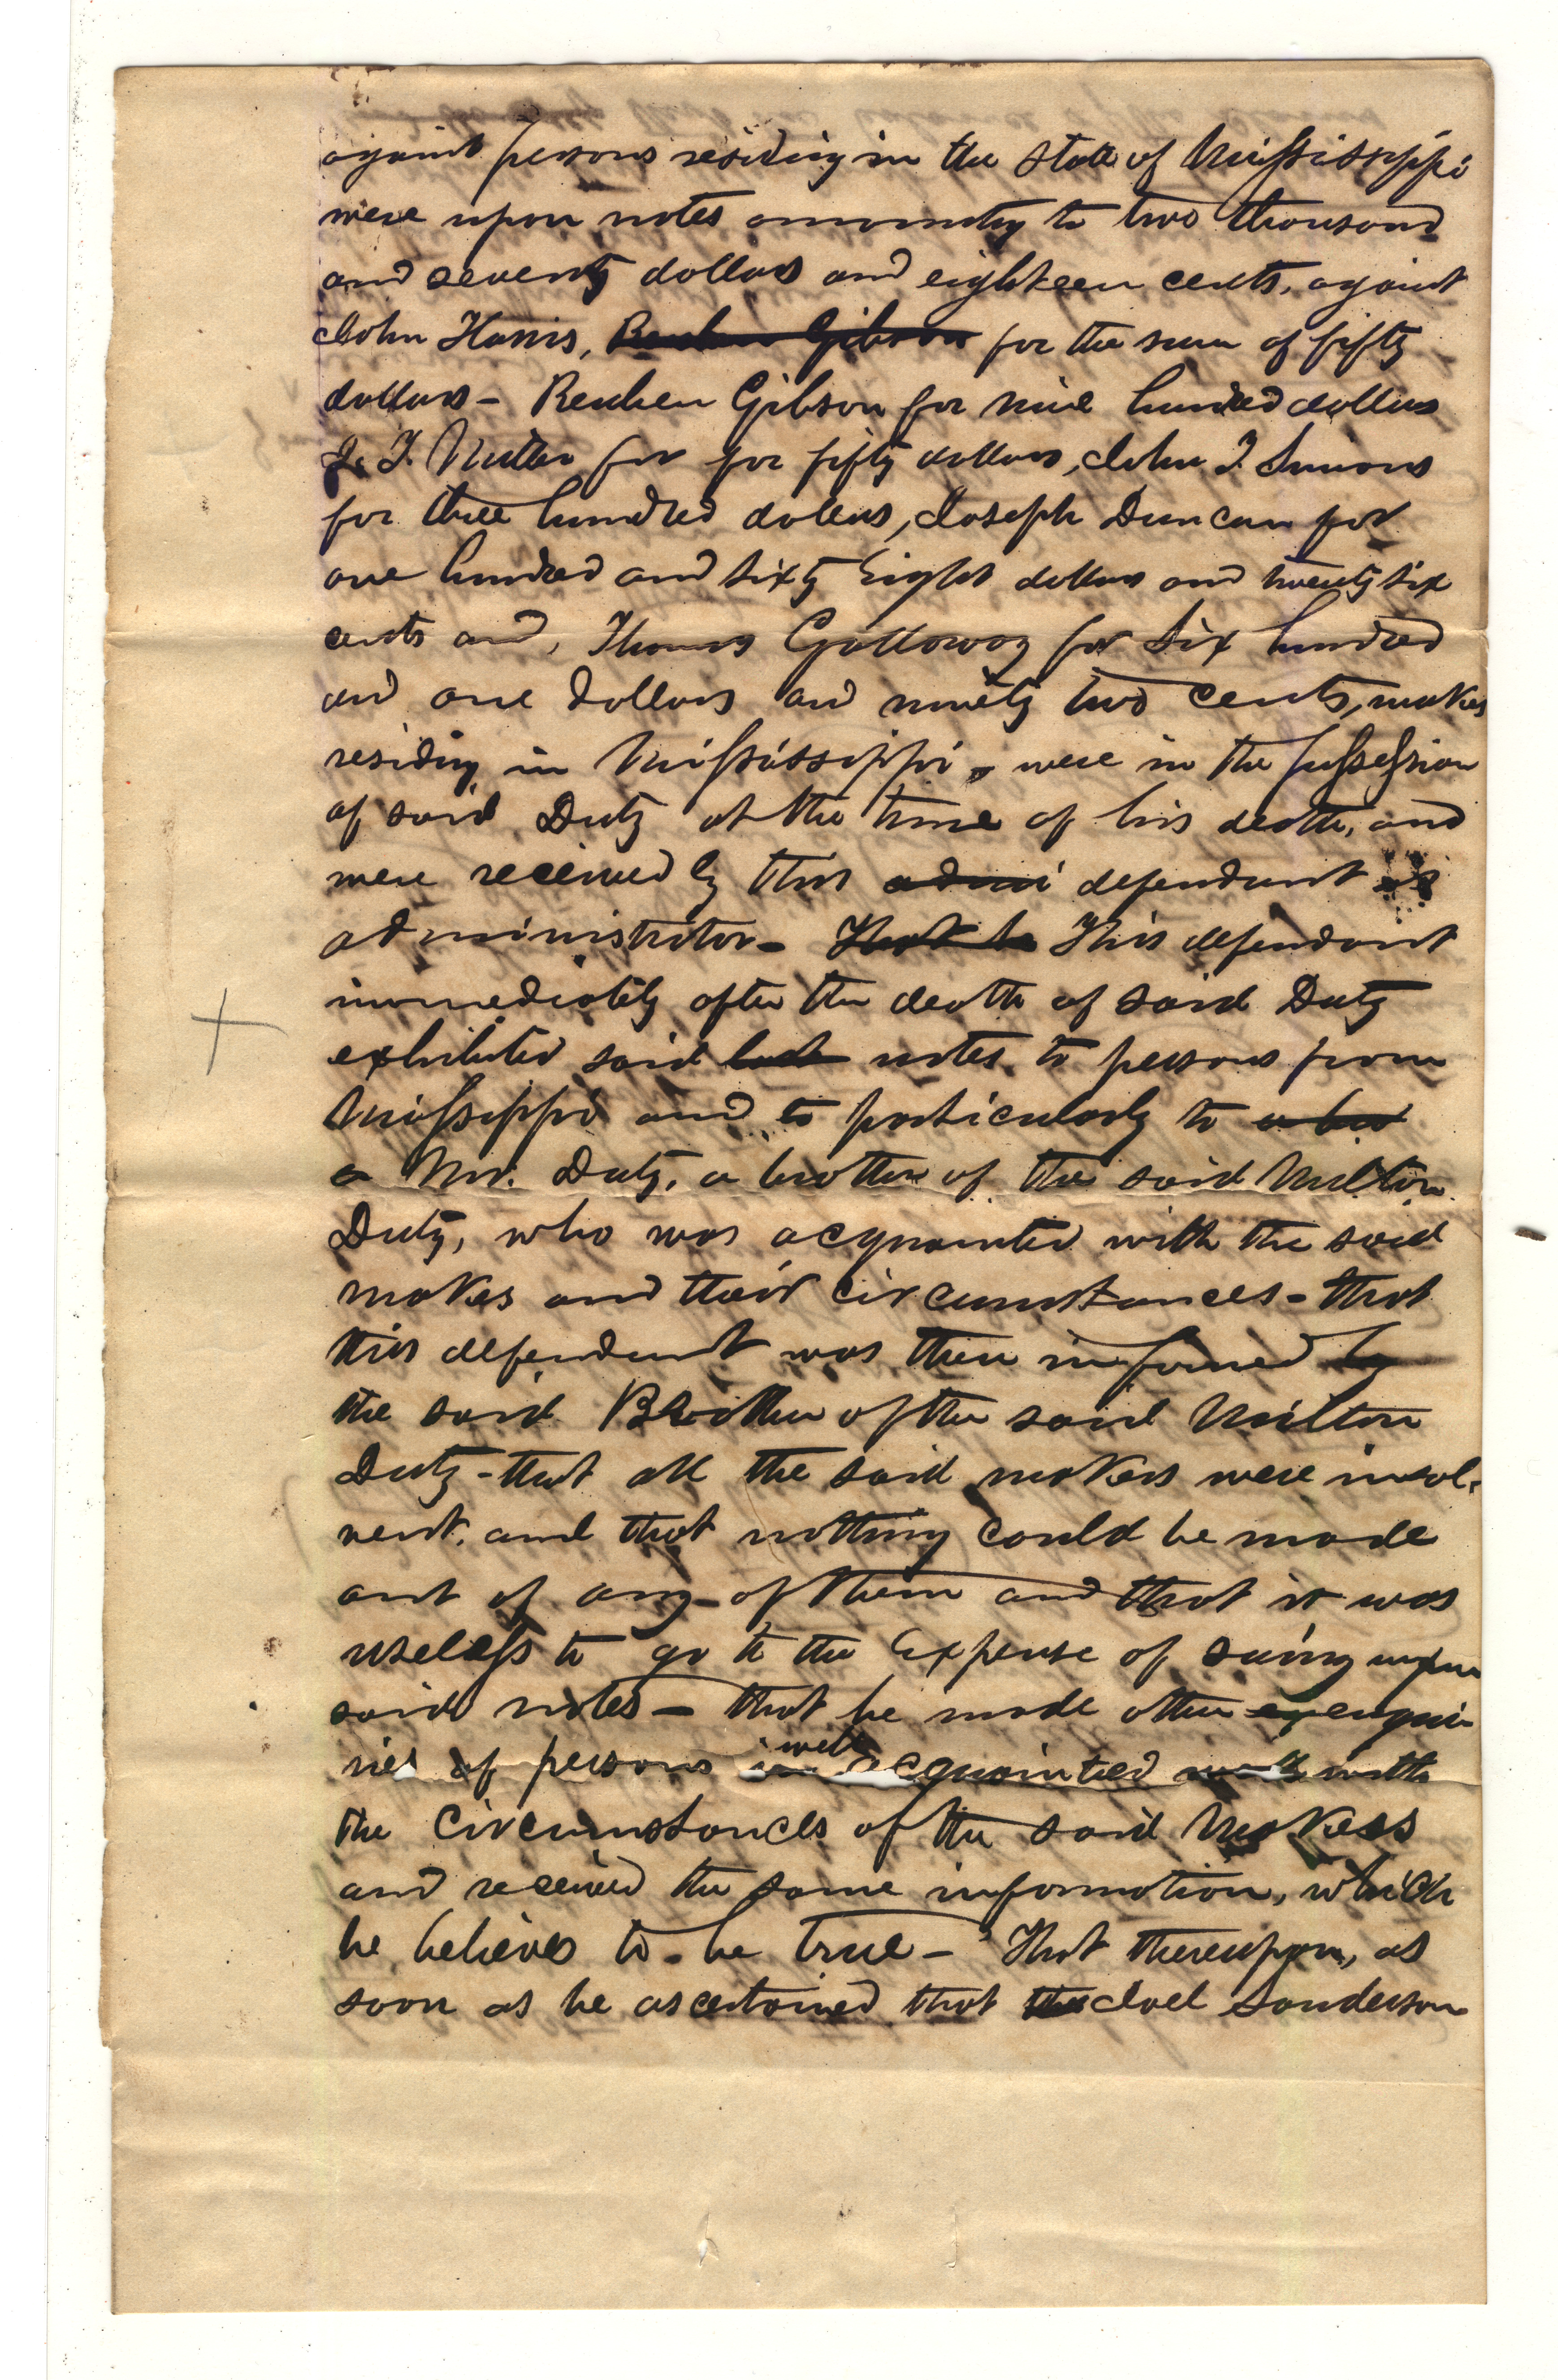 against persons residing in the state of Mississippi
were upon notes amounting to two thousand
and seventy dollars and eighteen cents, against
John Harris, Reuben Gibson for the sum of fifty
dollars - Reuben Gibson for nine hundred dollars
J. T. for for fifty dollars, John T. Simons
for three hundred dollars, Joseph Duncan for
one hundred and sixty Eight dollars and twenty six
cents and, Thomas Galloway for six hundred
and one dollars and ninety two cents, makers
residing in Mississippi, were in the possession
of said Duty at the time of his death, and
were received by this admi defendant as
administrator - That he This defendant
immediately after the death of said Duty
exhibited said notes to persons from
Missippi and to particularly to a
a Mr. Duty, a brother of the said Milton
Duty, who was acquainted with the said
makers and their circumstances - that
this defendant was then informed by
the said Brother of the said Milton
Duty - that all the said makers were insol-
vent, and that nothing could be made
out of any of them and that it was
useless to go to the Expense of suing upon
said notes - that he made other enqui-
ries of persons well acquainted with
the circumstances of the said Makers
and received the same information, which
he believes to be true - That thereupon, as
soon as he ascertained that the Joel Sanderson